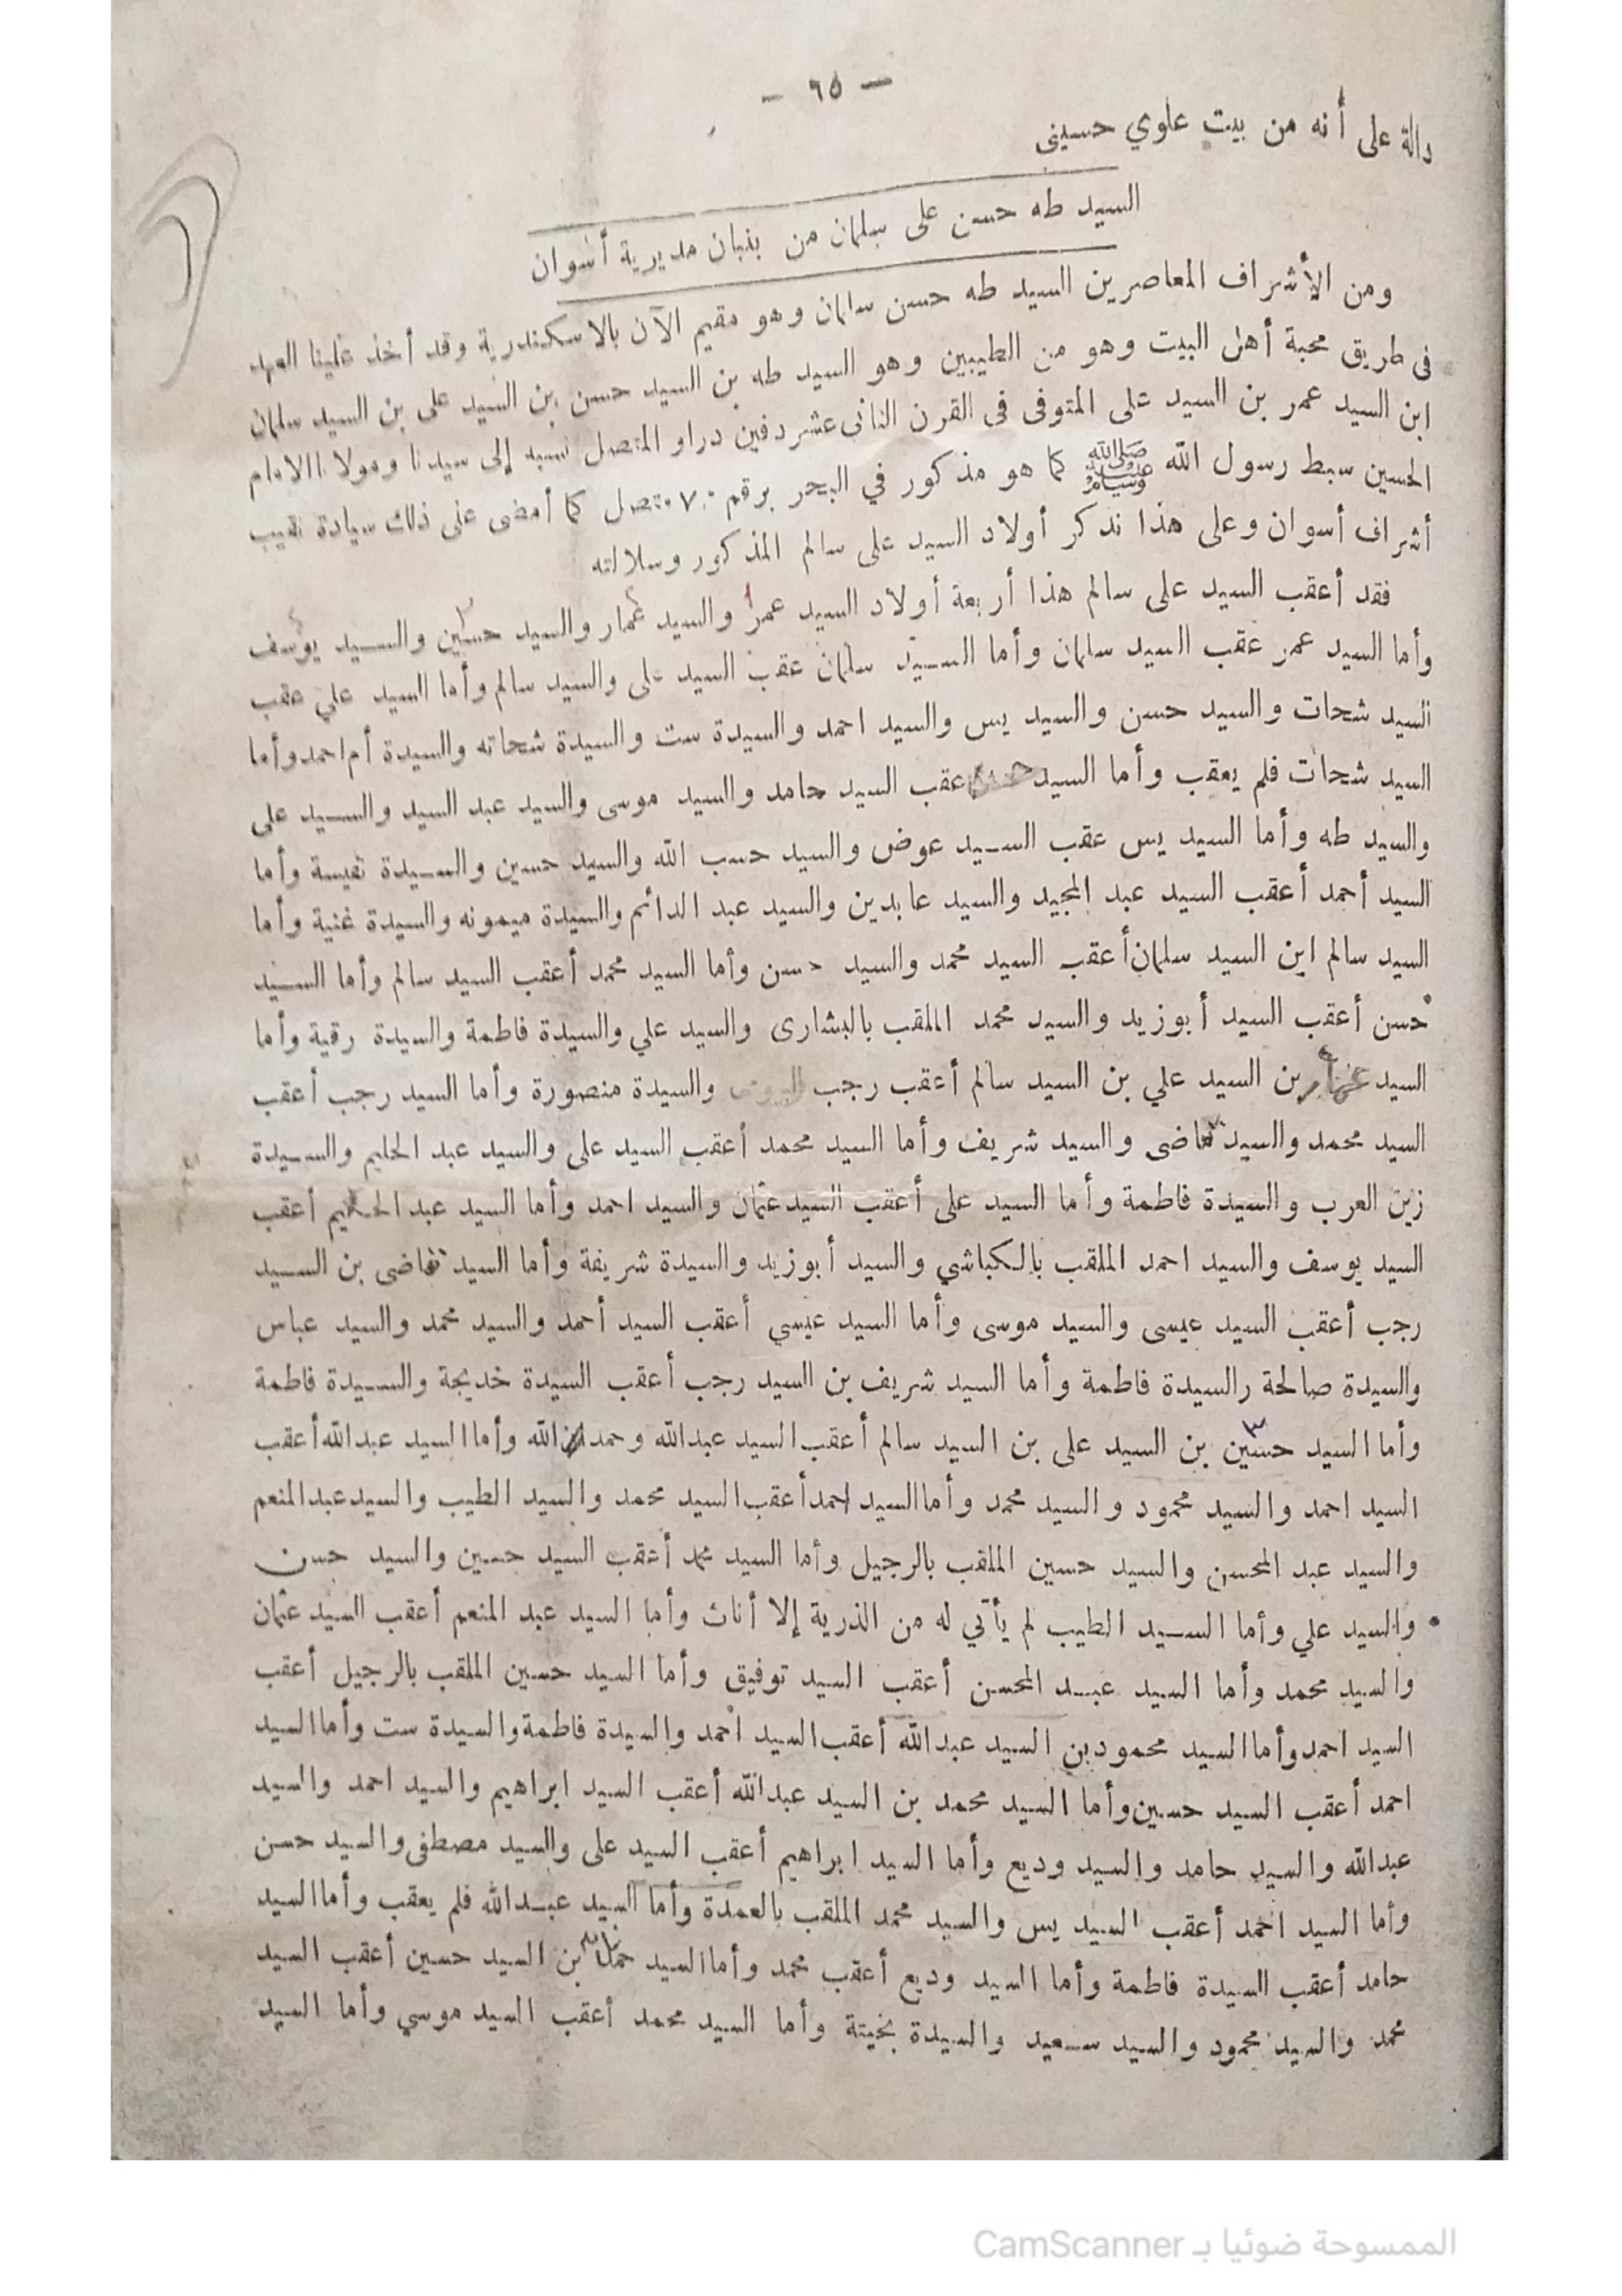 — ٦٥ —
دالة على أنه من بيت علوي حسينى
السيد طه حسن على سلمان من بنبان مديرية أسوان
ومن الأشراف المعاصرين السيد طه حسن سلمان وهو مقيم الآن بالاسكندرية وقد أخذ علينا العهد
فى طريق محبة أهل البيت وهو من الطيبين وهو السيد طه بن السيد حسن بن السيد على بن السيد سلمان
ابن السيد عمر بن السيد على المتوفى فى القرن الثانى عشر دفين دراو المتصل نسبه إلى سيدنا ومولانا الامام
الحسين سبط رسول الله ﷺ كما هو مذكور في البحر برقم ٧٠ متصل كما أمضى على ذلك سيادة نقيب
أشراف أسوان وعلى هذا نذكر أولاد السيد على سالم المذكور وسلالته
فقد أعقب السيد على سالم هذا أربعة أولاد السيد عمر ١ والسيد عمار والسيد حسين والسيد يوسف
وأما السيد عمر عقب السيد سلمان وأما السيد سلمان عقب السيد على والسيد سالم وأما السيد علي عقب
السيد شحات والسيد حسن والسيد يس والسيد احمد والسيدة ست والسيدة شحاته والسيدة أم احمد وأما
السيد شحات فلم يعقب وأما السيد عقب السيد حامد والسيد موسى والسيد عبد السيد والسيد على
والسيد طه وأما السيد يس عقب السيد عوض والسيد حسب الله والسيد حسين والسيدة نفيسة وأما
السيد أحمد أعقب السيد عبد المجيد والسيد عابدين والسيد عبد الدائم والسيدة ميمونه والسيدة غنية وأما
السيد سالم ابن السيد سلمان أعقب السيد محمد والسيد حسن وأما السيد محمد أعقب السيد سالم وأما السيد
حسن أعقب السيد أبوزيد والسيد محمد الملقب بالبشارى والسيد علي والسيدة فاطمة والسيدة رقية وأما
السيد بن السيد علي بن السيد سالم أعقب رجب والسيدة منصورة وأما السيد رجب أعقب
السيد محمد والسيد والسيد شريف وأما السيد محمد أعقب السيد على والسيد عبد الحليم والسيدة
زين العرب والسيدة فاطمة وأما السيد على أعقب السيد عثمان والسيد احمد وأما السيد عبد الحليم أعقب
السيد يوسف والسيد احمد الملقب بالكباشي والسيد أبوزيد والسيدة شريفة وأما السيد بن السيد
رجب أعقب السيد عيسى والسيد موسى وأما السيد عيسي أعقب السيد أحمد والسيد محمد والسيد عباس
والسيدة صالحة رالسيدة فاطمة وأما السيد شريف بن السيد رجب أعقب السيدة خديجة والسيدة فاطمة
وأما السيد حسين ٣ بن السيد على بن السيد سالم أعقب السيد عبدالله وأما السيد عبدالله أعقب
السيد احمد والسيد محمود والسيد محمد وأما السيد احمد أعقب السيد محمد والسيد الطيب والسيد عبد المنعم
والسيد عبد المحسن والسيد حسين الملقب بالرجيل وأما السيد محمد أعقب السيد حسين والسيد حسن
والسيد علي وأما السيد الطيب لم يأتي له من الذرية إلا أناث وأما السيد عبد المنعم أعقب السيد عثمان
والسيد محمد وأما السيد عبد المحسن أعقب السيد توفيق وأما السيد حسين الملقب بالرجيل أعقب
السيد احمد وأما السيد محمود بن السيد عبدالله أعقب السيد احمد والسيدة فاطمة والسيدة ست وأما السيد
احمد أعقب السيد حسين وأما السيد محمد بن السيد عبدالله أعقب السيد ابراهيم والسيد احمد والسيد
عبدالله والسيد حامد والسيد وديع وأما السيد ابراهيم أعقب السيد على والسيد مصطفى والسيد حسن
وأما السيد احمد أعقب السيد يس والسيد محمد الملقب بالعمدة وأما السيد عبدالله فلم يعقب وأما السيد
حامد أعقب السيدة فاطمة وأما السيد وديع أعقب محمد وأما السيد بن السيد حسين أعقب السيد
محمد والسيد محمود والسيد سعيد والسيدة بخيتة وأما السيد محمد أعقب السيد موسي وأما السيد
الممسوحة ضوئيا بـ CamScanner